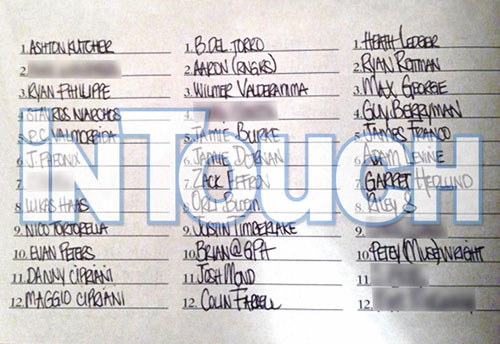 1. ASHTON KUTCHER
2.
3. RYAN PHILLIPE
4. STAVROS NIARCHOS
5. P.C. VALMORBIDA
6. J. PHEONIX
7.
8. LUKAS HAAS
9. NICO TORTORELLA
10. EVAN PETERS
11. DANNY CIPRIANI
12. MAGGIO CIPRIANI
1. B. DEL TORRO
2. AARON (RNGRS)
3. WILMER VALDERAMA
4.
5. JAMIE BURKE
6. JAMIE DORNAN
7. ZACK EFFRON
8. ORLY BLOOM
9. JUSTIN TIMBERLAKE
10. BRIAN@GPH
11. JOSH MOND
12. COLIN FARRELL
1. HEATH LEDGER
2. RYAN ROTTMAN
3. MAX GEORGE
4. GUY BERRYMAN
5. JAMES FRANCO
6. ADAM LEVINE
7. GARRET HEDLUND
8. RILEY S
9.
10. PETEY (MUSE) WRIGHT
11.
12.
INTouCH